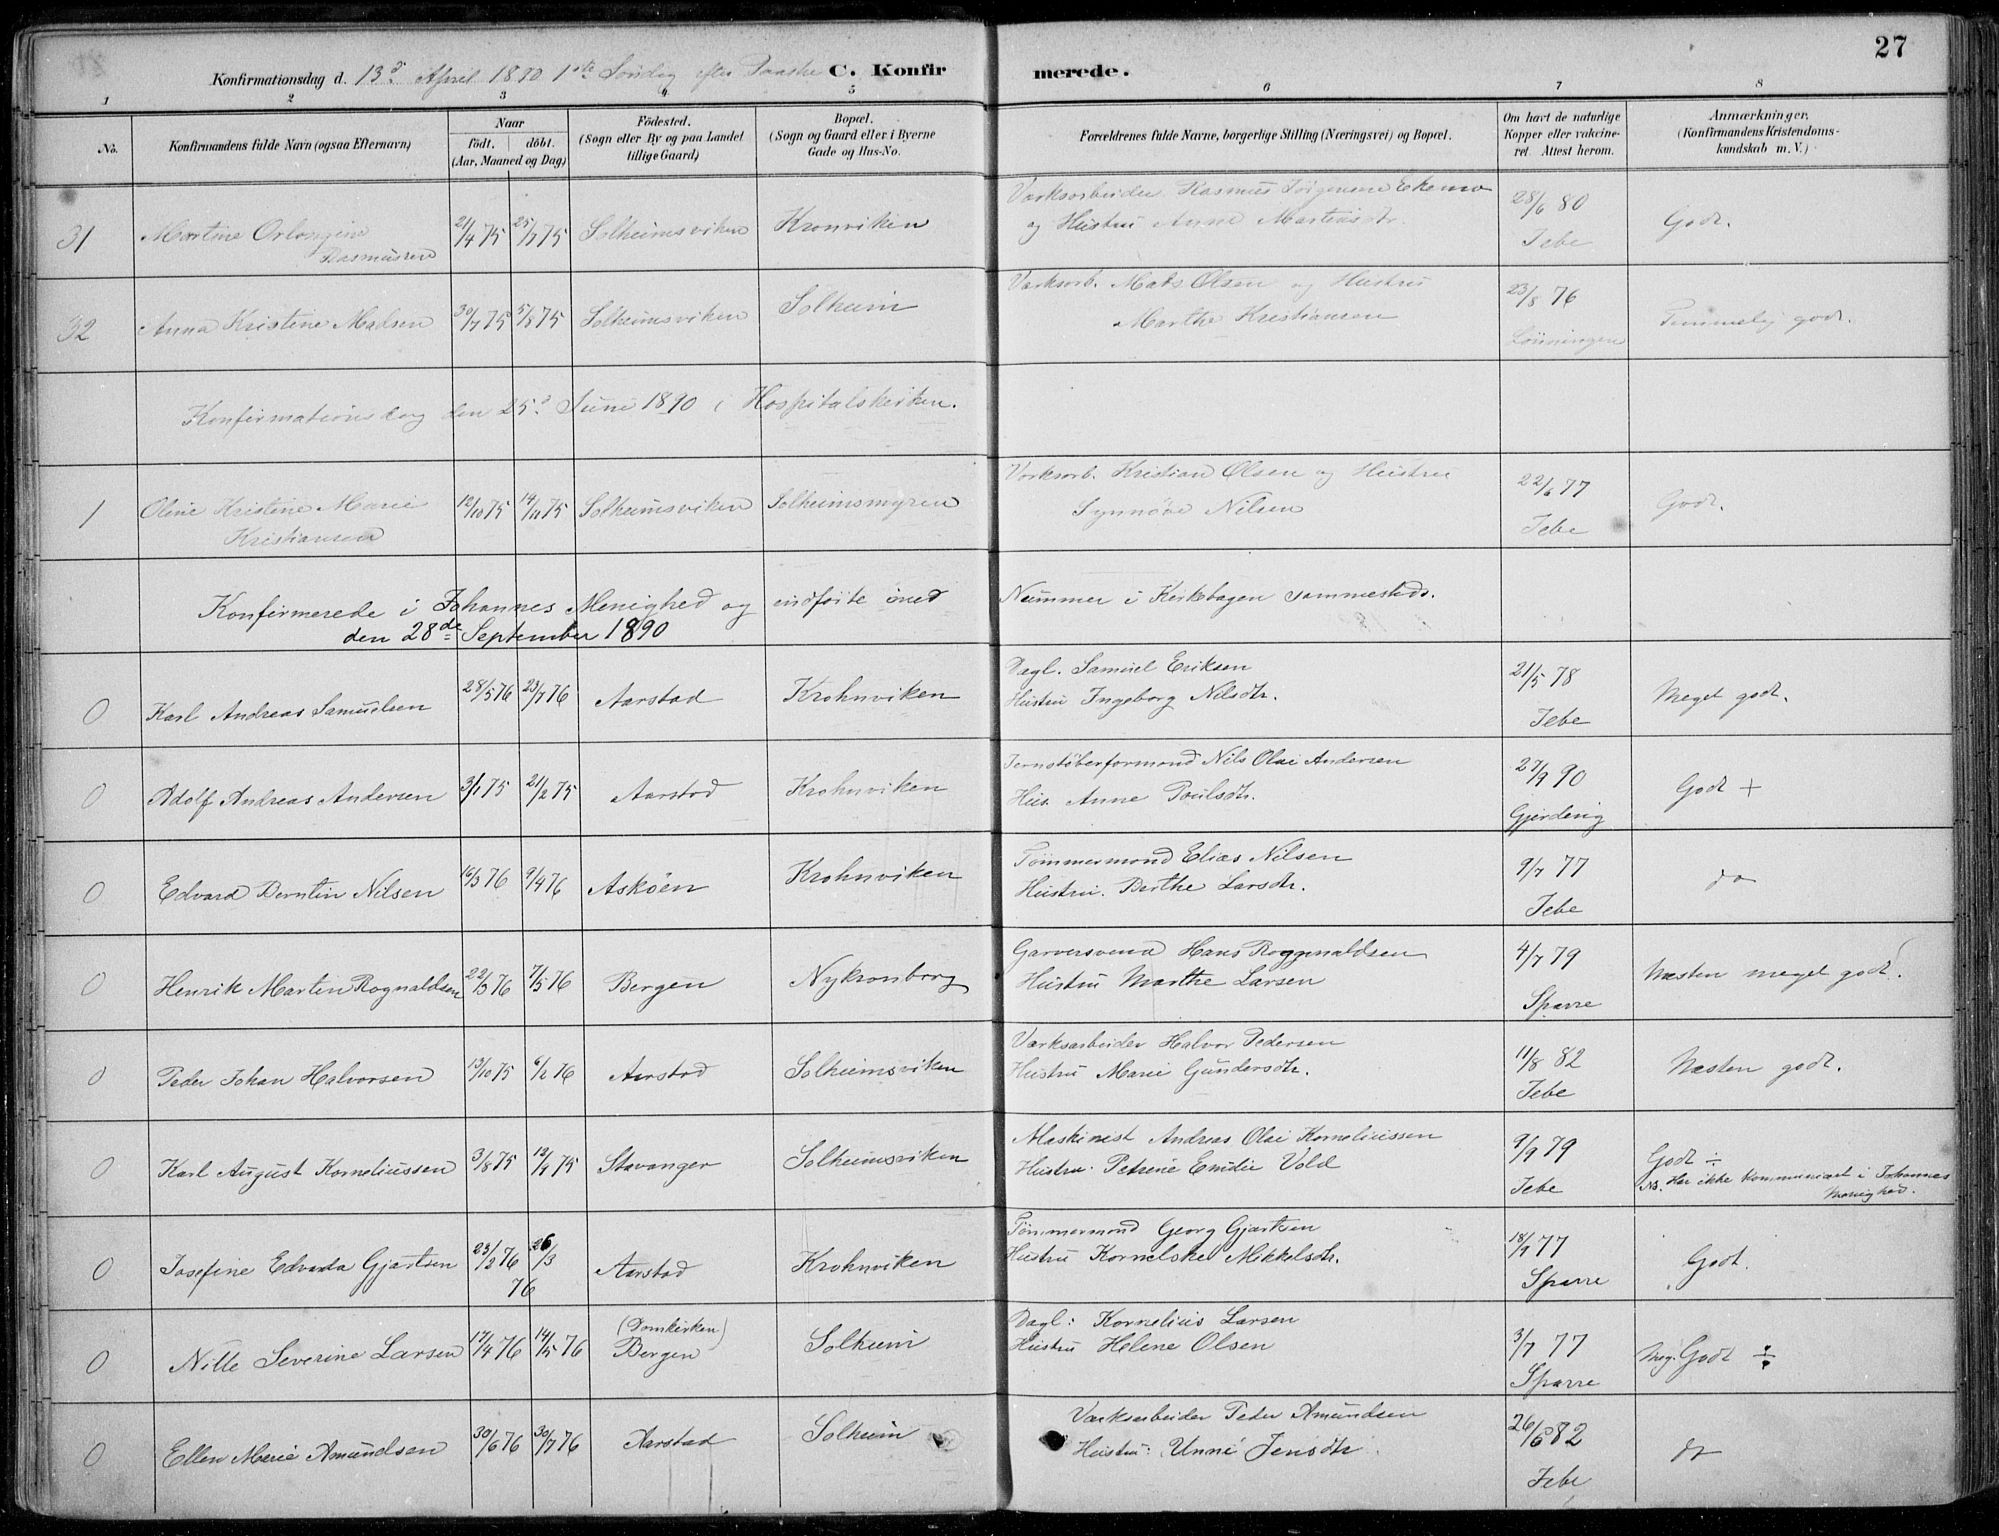 27
Konfirmationsdag d. 13de April 1890 1ste Søndag efter Paaske C. Konfirmerede.
1 2 3 4 5 6 7 8
No. Konfirmandens fulde Navn (ogsaa Efternavn) Naar født. døbt. (Aar, Maaned og Dag) Fødested. (Sogn eller By og paa Landet tillige Gaard) Bopæl. (Sogn og Gaard eller i Byerne Gade og Hus-No. Forældrenes fulde Navne, borgerlige Stilling (Næringsvei) og Bopæl. Om havt de naturlige Kopper eller vaccineret. Attest herom. Anmærkninger. (Konfirmandens Kristendomskundskab m. V.)
31 Martine Rasmussen 21/4 75 25/7 75 Solheimsviken Kronviken Værksarbeider Rasmus Jørgensen Ekemo og Hustru Anne Martinsdtr. 28/6 80 Jebe Godt.
32 Anna Kristine Madsen 30/7 75 5/8 75 Solheimsviken Solheim Værksarb. Mads Olsen og Hustru Marthe Kristiansen 23/8 76 Lönningen Temmelig godt.
Konfirmationsdag den 25de Juni 1890 i Hospitalskirken.
1 Oline Kristine Marie Kristiansen 12/10 75 14/11 75 Solheimsviken Solheimsmyren Værksarb. Kristian Olsen og Hustru Synnöve Nilsen 22/6 77 Jebe Godt.
Konfirmerede i Johannes Menighed og indførte med Nummer i Kirkebogen sammesteds.
den 28de September 1890
0 Karl Andreas Samuelsen 28/5 76 23/7 76 Aarstad Krohnviken Dagl. Samuel Eriksen Hustru Ingeborg Nilsdtr. 21/5 78 Jebe Meget godt.
0 Adolf Andreas Andersen 3/1 75 21/2 75 Aarstad Krohnviken Jernstøberformand Nils Olai Andersen Hus. Anne Poulsdtr. 27/9 90 Gjerding Godt +
0 Edvard Berntin Nilsen 16/3 76 9/4 76 Askøen Krohnviken Tömmermand Elias Nilsen Hustru. Berthe Larsdtr. 9/7 77 Jebe do
0 Henrik Martin Rognaldsen 22/3 76 7/5 76 Bergen Nykronborg Garversvend Hans Roggnaldsen Hustru Marthe Larsen 4/7 79 Sparre Næsten meget godt.
0 Peder Johan Halvorsen 13/10 75 6/2 76 Aarstad Solheimsviken Værksarbeider Halvor Pedersen Hustru Marie Gundersdtr. 11/8 82 Jebe Næsten godt.
0 Karl August Korneliussen 3/8 75 12/9 75 Stavanger Solheimsviken Maskinist Andreas Olai Korneliussen Hustru Petrine Emilie Vold 9/9 79 Jebe Godt ÷ NB. Har ikke kommuniceret i Johannes Menighed.
0 Josefine Edvarda Gjertsen 23/2 76 26/3 76 Aarstad Krohnviken Tömmermand Georg Gjertsen Hustru Kornelske Mikkelsdtr. 18/9 77 Sparre Godt.
0 Nille Severine Larsen 17/4 76 14/5 76 (Domkirken) Bergen Solheim Dagl: Kornelius Larsen Hustru Helene Olsen 3/7 77 Sparre Meg. Godt ÷
0 Ellen Marie Amundsen 30/6 76 30/7 76 Aarstad Solheim Værksarbeider Peder Amundsen Hustru: Unni Jensdtr. 26/6 82 Jebe do